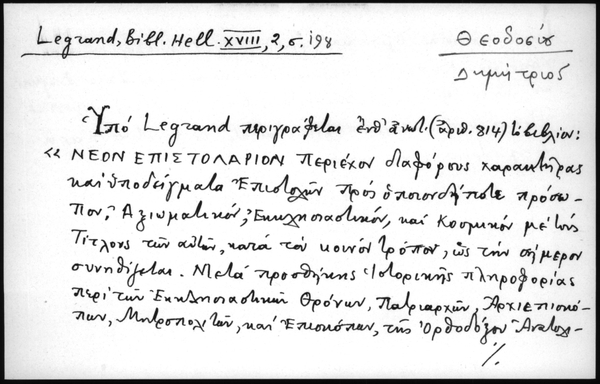 Legrand, Bibl. Hell. XVIII, 2, σ. 198
Θεοδοσίου
Δημήτριος
Ὑπό Legrand περιγράφεται ἐνθ' ἀνωτ. (ἀριθ. 814) τὸ βιβλίον:
« ΝΕΟΝ ΕΠΙΣΤΟΛΑΡΙΟΝ περιέχον διαφόρους χαρακτῆρας
καὶ ὑποδείγματα Ἐπιστολῶν πρὸς ὁποιονδήποτε πρόσω-
πον, Ἀξιωματικόν, Ἐκκλησιαστικόν, καὶ Κοσμικόν μὲ τοὺς
Τίτλους τῶν αὐτῶν, κατὰ τὸν κοινὸν τρόπον, ὡς τὴν σήμερον
συνηθίζεται. Μετὰ προσθήκης Ἱστορικῆς πληροφορίας
περὶ τῶν Ἐκκλησιαστικῶν Θρόνων, Πατριαρχῶν, Ἀρχιεπισκό-
πων, Μητροπολιτῶν, καὶ Ἐπισκόπων, τῆς Ὀρθοδόξου Ἀνατολι-
./.